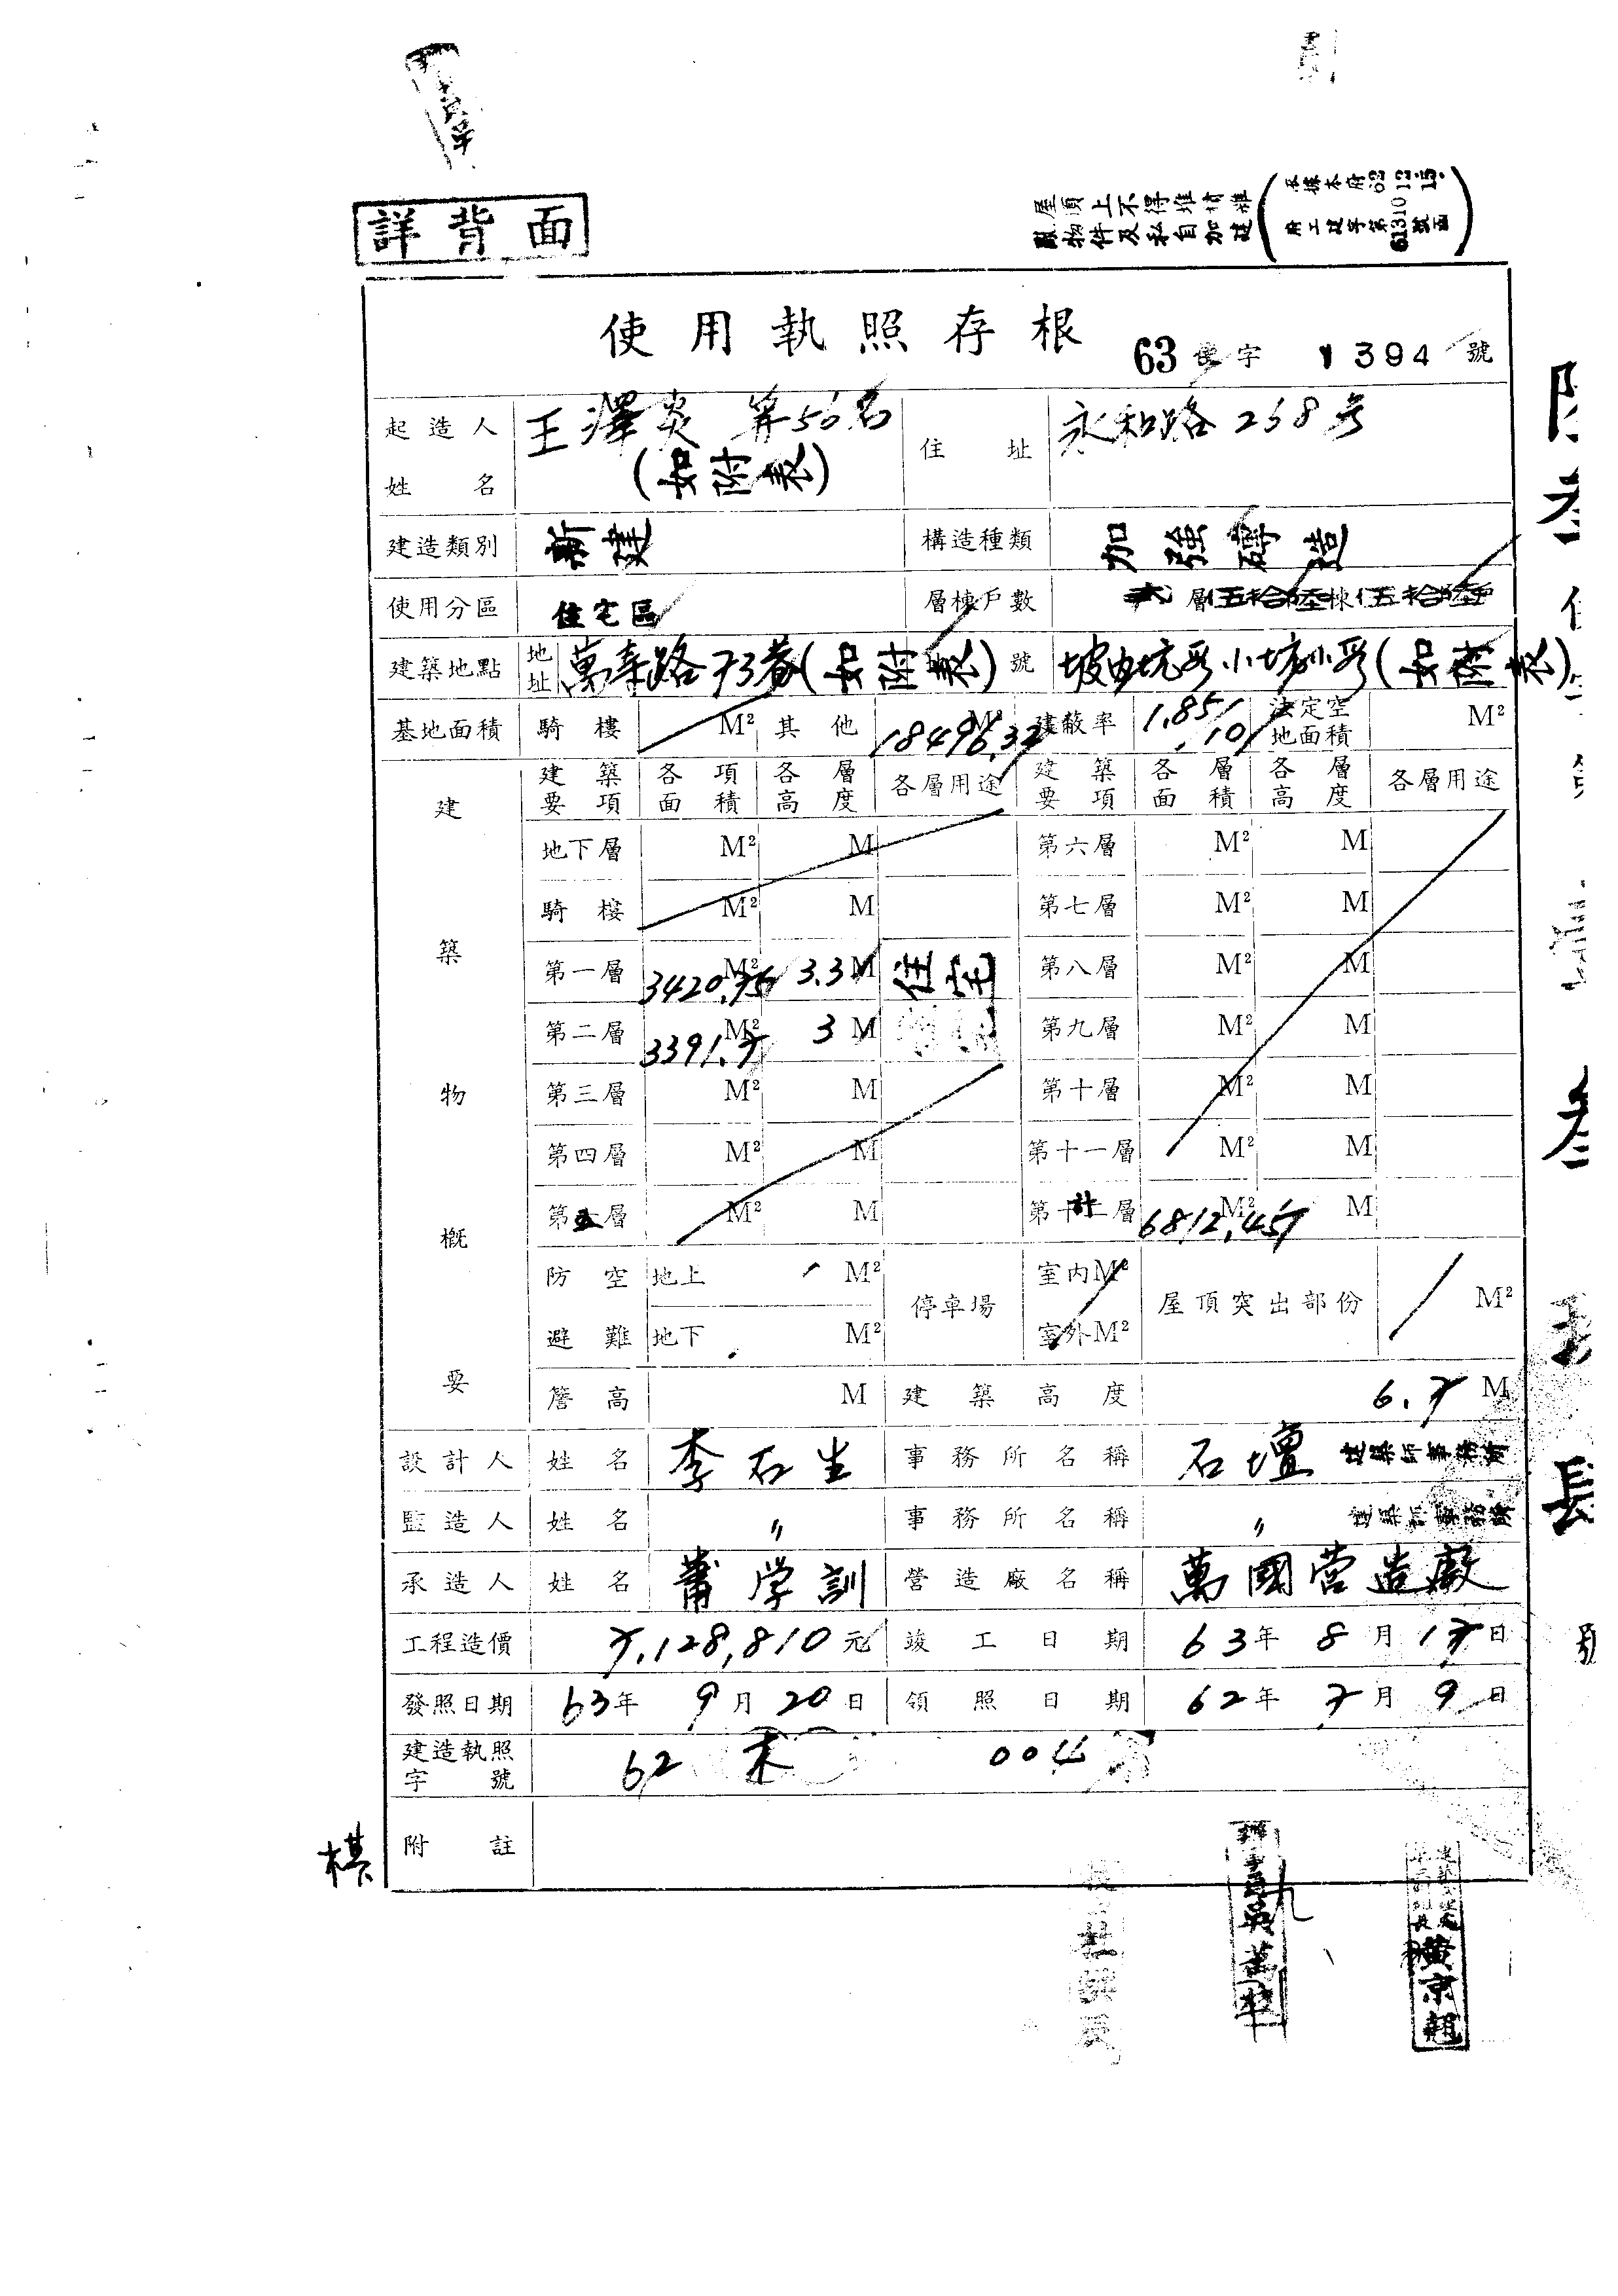 詳背面
屋頂上不得堆
物件及私自加建
使用執照存根 63 使字 1394 號
起造人姓名 王澤炎 等56名 (如附表) 住址 永和路268号
建造類別 新建 構造種類 加強磚造
使用分區 住宅區 層棟戶數 貳層伍拾陸棟伍拾陸戶
建築地點 地址 萬壽路73巷(如附表)號 坡內坑段小坑小段(如附表)
基地面積 騎樓 M² 其他 18496.32 M² 建蔽率 1.85/10 法定空地面積 M²
建築物概要
建築要項 各項面積 各層高度 各層用途 建築要項 各層面積 各層高度 各層用途
地下層 M² M 第六層 M² M
騎樓 M² M 第七層 M² M
第一層 3420.75 M² 3.3 M 住宅 第八層 M² M
第二層 3391.7 M² 3 M 第九層 M² M
第三層 M² M 第十層 M² M
第四層 M² M 第十一層 M² M
第五層 M² M 計 6812.45 M² M
防空避難 地上 M² 停車場 室內 M² 屋頂突出部份 M²
地下 M² 室外 M²
簷高 M 建築高度 6.7 M
設計人 姓名 李石生 事務所名稱 石壇 建築師事務所
監造人 姓名 〃 事務所名稱 〃 建築師事務所
承造人 姓名 蕭学訓 營造廠名稱 萬國营造廠
工程造價 7,128,810元 竣工日期 63年8月17日
發照日期 63年9月20日 領照日期 62年7月9日
建造執照字號 62 004
附註
棋
黃京趙
長